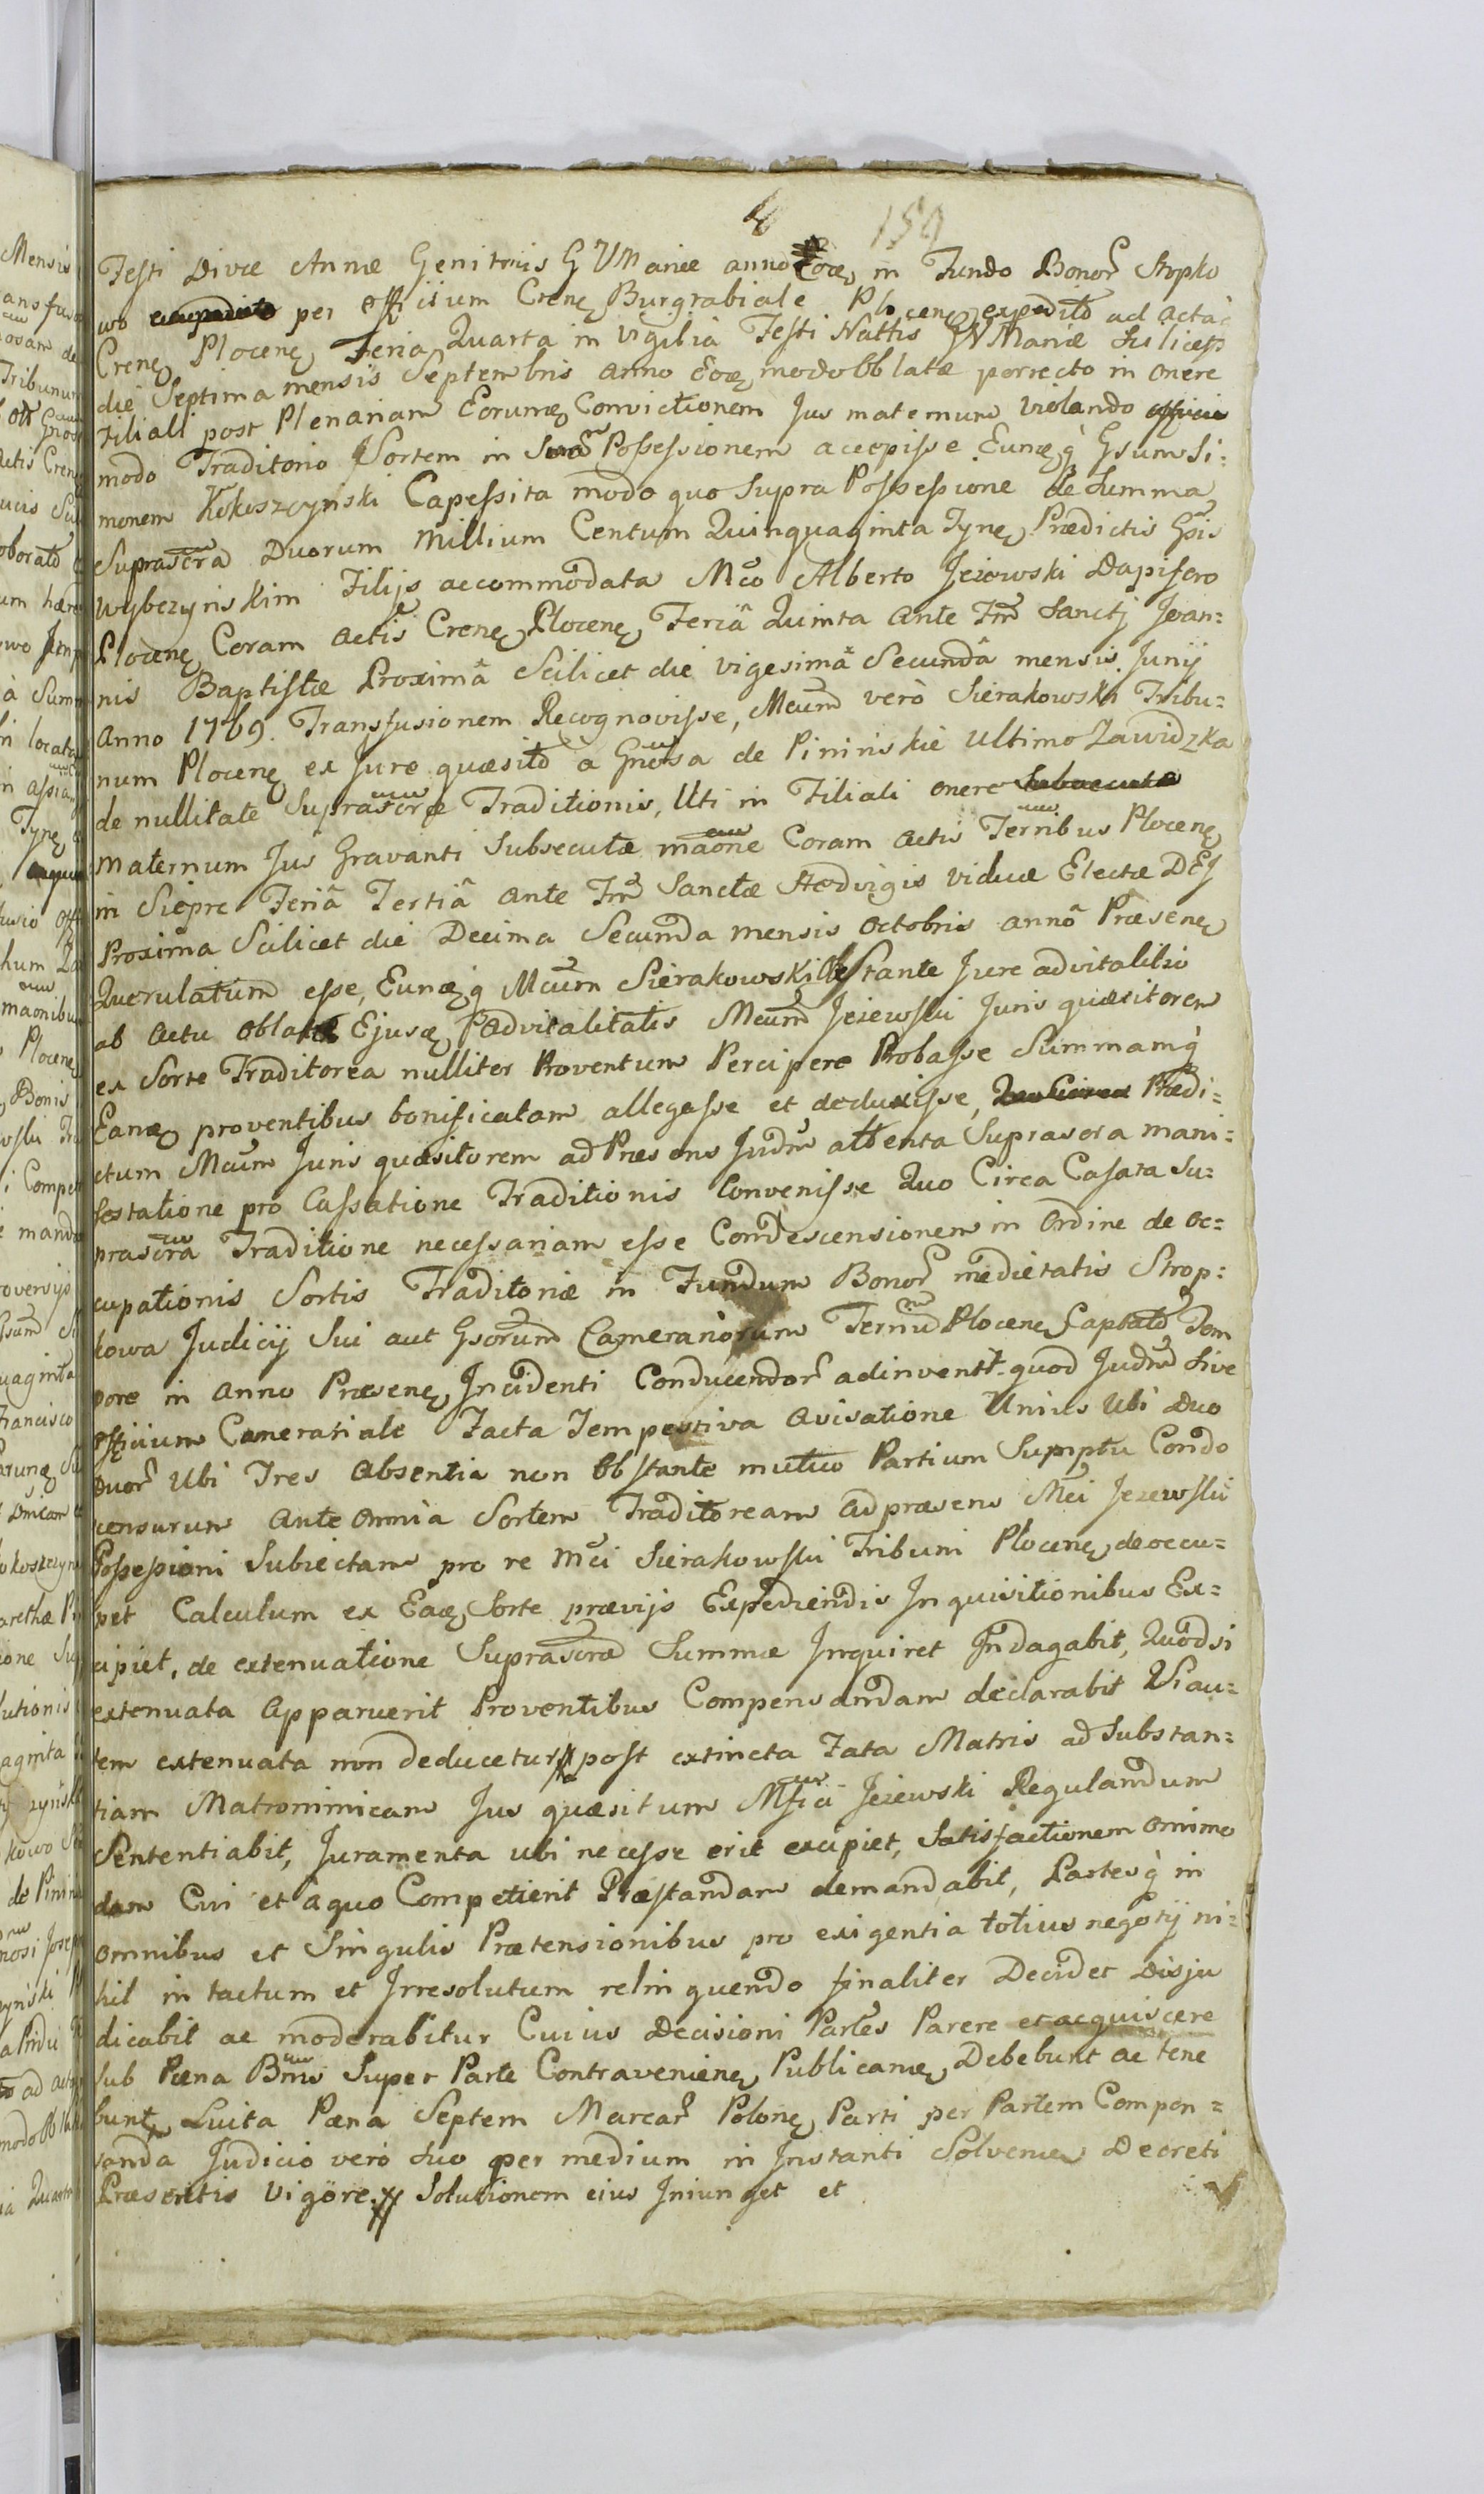 159
Festi Divæ Annæ Genitricis G V Mariæ anno Eoȩ in Fundo Bonor Stropko
wo per officium Crenȩ Burgrabiale Plocenȩ expedito ad acta
Crenȩ Plocenȩ Feria Quarta in Vigilia Festi Nattis GV Mariæ Scilicet
die Septima mensis Septembris anno Eoȩ modo Oblatæ porrecto in onere
Filiali post Plenariam Eorumȩ Convictionem Jus maternum violando
modo Traditorio Sortem in Suã Possessionem accepisse Eunȩq̀ Gsum Si:
monem Kokoszczyński Capessita modo quo Supra Possessione de Summa
Suprascra Duorum Millium Centum Quinquaginta Tynȩ Prædictis Gsis
Wybczynskim Filijs accommodata Mco Alberto Jeżewski Dapifero
Plocenȩ Coram actis Crenȩ Plocenȩ Feriâ Quinta Ante Fm̃ Sanctj Joan:
nis Baptistæ Proximâ Scilicet die vigesimâ Secundâ mensis Junij
Anno 1769. Transfusionem Recognovisse, Mcum verò Sierakowski Tribu:
num Plocenȩ ex Jure quæsito a Gnosa de Pininskie ultimo Zawidzka
de nullitate Suprascræ Traditionis, Uti in Filiali onere
maternum Jus Gravanti Subsecutæ maone Coram actis Ternibus Plocenȩ
in Sieprc Feriâ Tertiâ ante Fm̃ Sanctæ Hedvigis viduæ Electæ DEJ
Proxima Scilicet die Decima Secunda mensis Octobris annô Præsenȩ
Querulatum esse, Eunȩq̀ Mcum Sierakowski Obstante Jure advitalitio
ab actu oblatæ Ejusȩ advitalitatis Mcum Jeżewski Juris quæsitorem
ex Sorte Traditorea nulliter Proventum Percipere Probasse Summamq̀
Eanȩ proventibus bonificatam allegasse et deduxisse, Prædi:
ctum Mcum Juris quæsitorem ad Præsens Judm attenta Suprascra mani:
festatione pro Cassatione Traditionis Convenisse Quo Circa Cassata Su:
prascra Traditione necessariam esse Condescensionem in Ordine de oc:
cupationis Sortis Traditoriæ in Fundum Bonor medietatis Strop:
kowa Judicij Sui aut Gsorum Camerariorum Ternu Plocenȩ Captato Tem
pore in anno Præsenȩ Incidenti Conducendor adinvenit. quod Judm Sive
officium Camerariale Facta Tempestiva Avisatione Unius Ubi Duo
Duor Ubi Tres Absentia non Obstante mutuo Partium Sumptu Conde
censurum ante Omnia Sortem Traditoream ad præsens Mci Jeżewski
Possessioni Subiectam pro re Mci Sierakowski Tribuni Plocenȩ deoccu=
pet Calculum ex Eaȩ Sorte prævijs Expediendis Inquisitionibus Ex=
cipiet, de extenuatione Suprascræ Summæ Inquiret Indagabit, Quodsi
extenuata Apparuerit Proventibus Compensandam declarabit Si au=
tem extenuata non deducetur post extincta Fata Matris ad Substan:
tiam Matronimicam Jus quæsitum Mfici Jeżewski Regulandum
Sententiabit, Juramenta ubi necesse erit excipiet, Satisfactionem omimo
dam Cui et a quo Competierit Præstandam demandabit, Partesq̀ in
omnibus et Singulis Prætensionibus pro exigentia totius negotij ni=
hil in tactum et Irresolutum relinquendo finaliter Decidet Disju
dicabit ac moderabitur Cuius Decisioni Partes Parere et acquiscere
sub Pœna Bnis Super Parte Contravenienȩ Publicanȩ, Debebunt ac tene
buntȩ Luita Pœna Septem Marcar Polonȩ Parti per Partem Compen=
sanda Judicio verò Suo per medium in Instanti Solvenȩ Decreti
Præsentis Vigôre. Solutionem eius Iniunget et